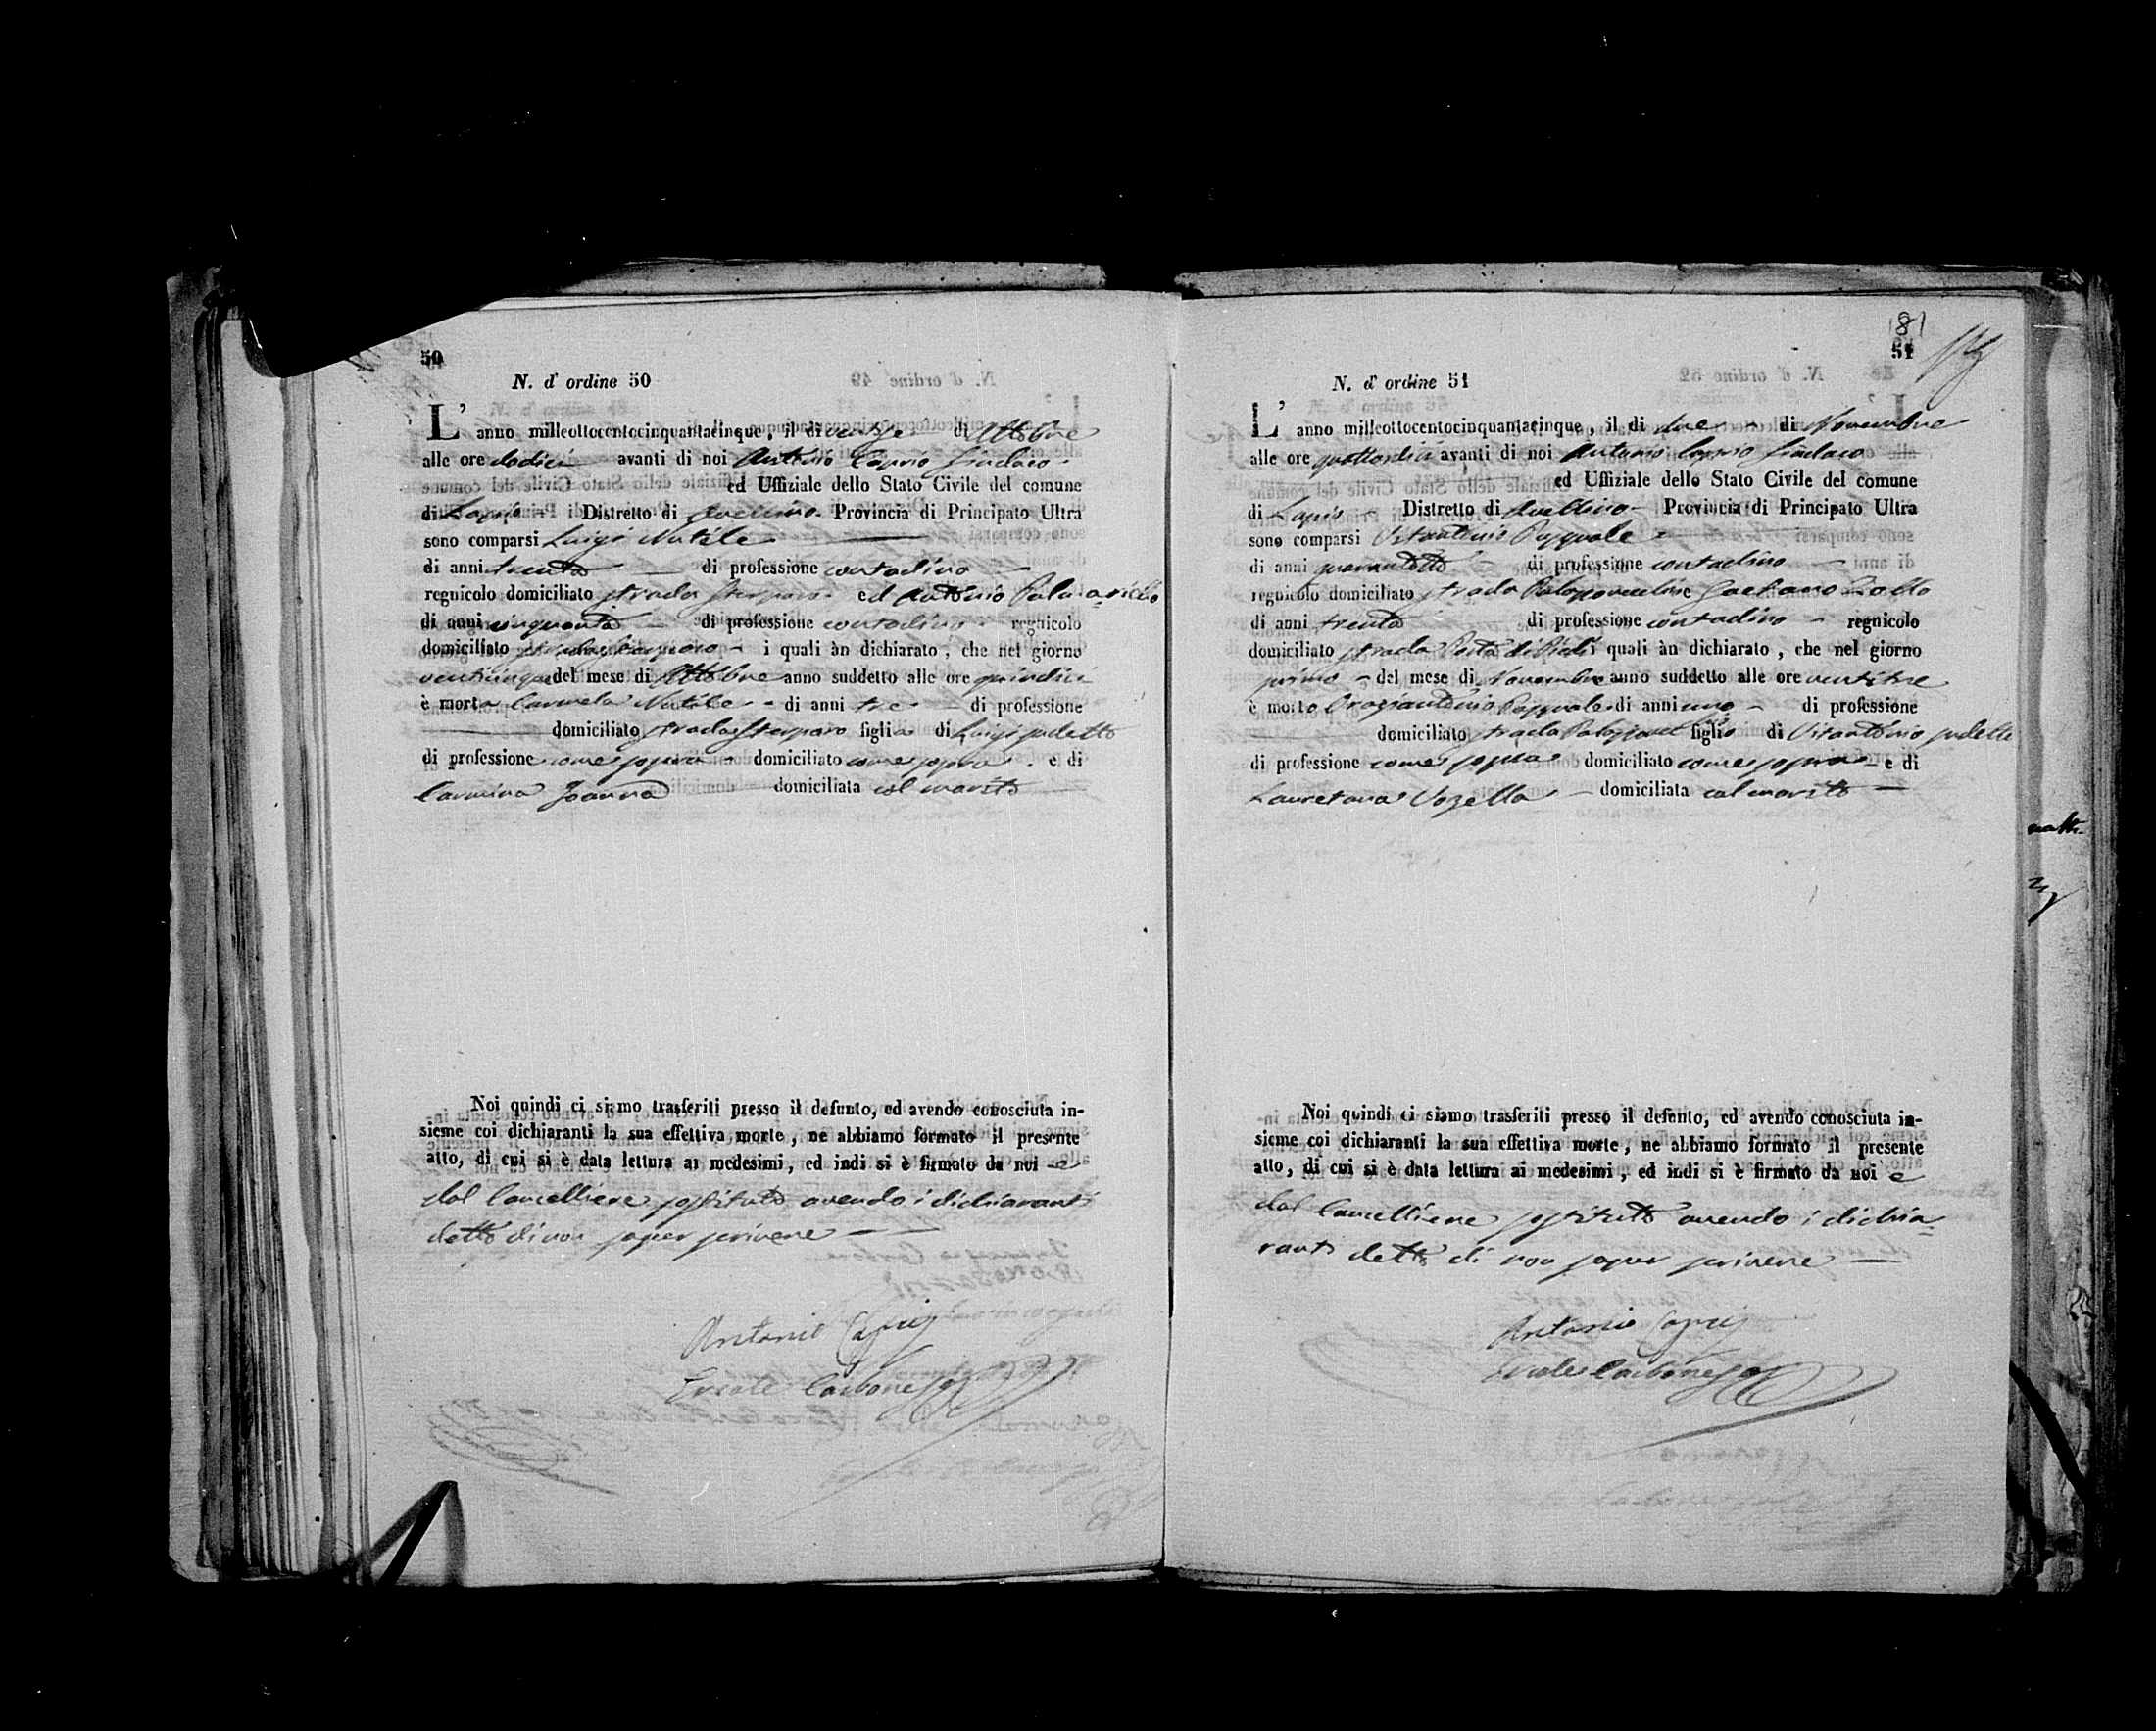 50
N. d' ordine 50
L' anno milleottocentocinquantacinque, il di di Ottobre
alle ore dodici avanti di noi Antonio Caprio Sindaco
ed Uffiziale dello Stato Civile del comune
di Lapio Distretto di Avellino Provincia di Principato Ultra
sono comparsi Luigi Natale
di anni trenta di professione contadino
regnicolo domiciliato strada ed Antonio
di anni cinquanta di professione contadino regnicolo
domiciliato strada i quali àn dichiarato, che nel giorno
venticinque del mese di Ottobre anno suddetto alle ore quindici
è morta Carmela Natale di anni tre di professione
domiciliato strada figlia di Luigi sudetto
di professione come sopra domiciliato come sopra e di
Carmina Joanna domiciliata col marito
Noi quindi ci siamo trasferiti presso il defunto, ed avendo conosciuta in-
sieme coi dichiaranti la sua effettiva morte, ne abbiamo formato il presente
atto, di cui si è data lettura ai medesimi, ed indi si è firmato da noi e
dal Cancelliere sostituto avendo i dichiaranti
detto di non saper scrivere
Antonio Caprio
Ercole Carbone
181
51
N. d' ordine 51
L' anno milleottocentocinquantacinque, il di due di Novembre
alle ore quattordici avanti di noi Antonio Caprio Sindaco
ed Uffiziale dello Stato Civile del comune
di Lapio Distretto di Avellino Provincia di Principato Ultra
sono comparsi Vitantonio Pasquale
di anni quarantotto di professione contadino
regnicolo domiciliato strada e Gaetano
di anni trenta di professione contadino regnicolo
domiciliato strada Porta di i quali àn dichiarato, che nel giorno
primo del mese di Novembre anno suddetto alle ore ventitre
è morto Oraziantonio Pasquale di anni uno di professione
domiciliato strada figlio di Vitantonio sudetto
di professione come sopra domiciliato come sopra e di
Lauretana Vozella domiciliata col marito
Noi quindi ci siamo trasferiti presso il defunto, ed avendo conosciuta in-
sieme coi dichiaranti la sua effettiva morte, ne abbiamo formato il presente
atto, di cui si è data lettura ai medesimi, ed indi si è firmato da noi e
dal Cancelliere sostituto avendo i dichia-
ranti detto di non saper scrivere
Antonio Caprio
Ercole Carbone